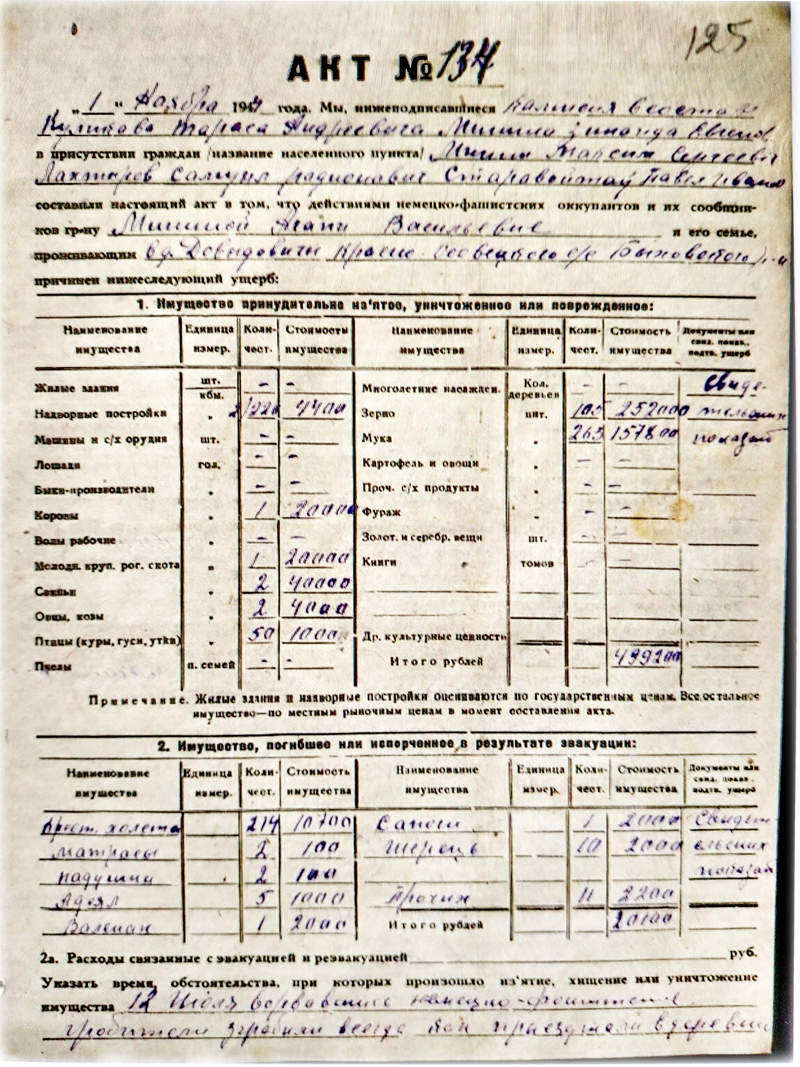 125
АКТ № 134
„1“ Ноября 1944 года. Мы, нижеподписавшиеся
Тараса Андреевича Мишина Зинаида
в присутствии граждан /название населенного пункта/ Мишин Максим Сергеевич
Самуил Радионавич Старавойтау Павел
составили настоящий акт в том, что действиями немецко-фашистских оккупантов и их сообщни-
ков гр-ну Мишиной Агапи Васильевне и его семье,
проживающим в д. Довидовичи Красно-Слободского с/с Быховского р-н
причинен нижеследующий ущерб:
1. Имущество принудительно из'ятое, уничтоженное или поврежденное:
Наименование имущества Единица измер. Коли-чест. Стоимость имущества Наименование имущества Единица измер. Коли-чест. Стоимость имущества Документы или свид. показ., подтв. ущерб
Жилые здания шт. кбм. – – Многолетние насажден. Кол. деревьев – – Свиде-
Надворные постройки „ 2/220 4400 Зерно цнт. 105 252000 тельские
Машины и с/х орудия шт. – – Мука „ 263 157800 показан
Лошади гол. – – Картофель и овощи „ – –
Быки-производители „ – – Проч. с/х продукты „ – –
Коровы „ 1 20000 Фураж „ – –
Волы рабочие „ – – Золот. и серебр. вещи шт. – –
Молодн. круп. рог. скота „ 1 20000 Книги томов – –
Свиньи „ 2 40000
Овцы, козы „ 2 4000
Птицы (куры, гуси, утки) „ 50 1000 Др. культурные ценности
Пчелы п. семей – – Итого рублей 499200
Примечание. Жилые здания и надворные постройки оцениваются по государственным ценам. Все остальное
имущество—по местным рыночным ценам в момент составления акта.
2. Имущество, погибшее или испорченное в результате эвакуации:
Наименование имущества Единица измер. Коли-чест. Стоимость имущества Наименование имущества Единица измер. Коли-чест. Стоимость имущества Документы или свид. показ. подтв. ущерб
Крест. холста 214 10700 Сапоги 1 2000 Свидет
Матрасы 2 100 Шерсць 10 2000 ельских
Надушки 2 100 показан
Адеял 5 1000 Прочих 11 2200
Валенак 1 2000 Итого рублей 20100
2а. Расходы связанные с эвакуацией и реэвакуацией руб.
Указать время, обстоятельства, при которых произошло из'ятие, хищение или уничтожение
имущества 12 Июля ворвавшие немецко-фашитские
грабители зграбили всегда как приезжали в деревню